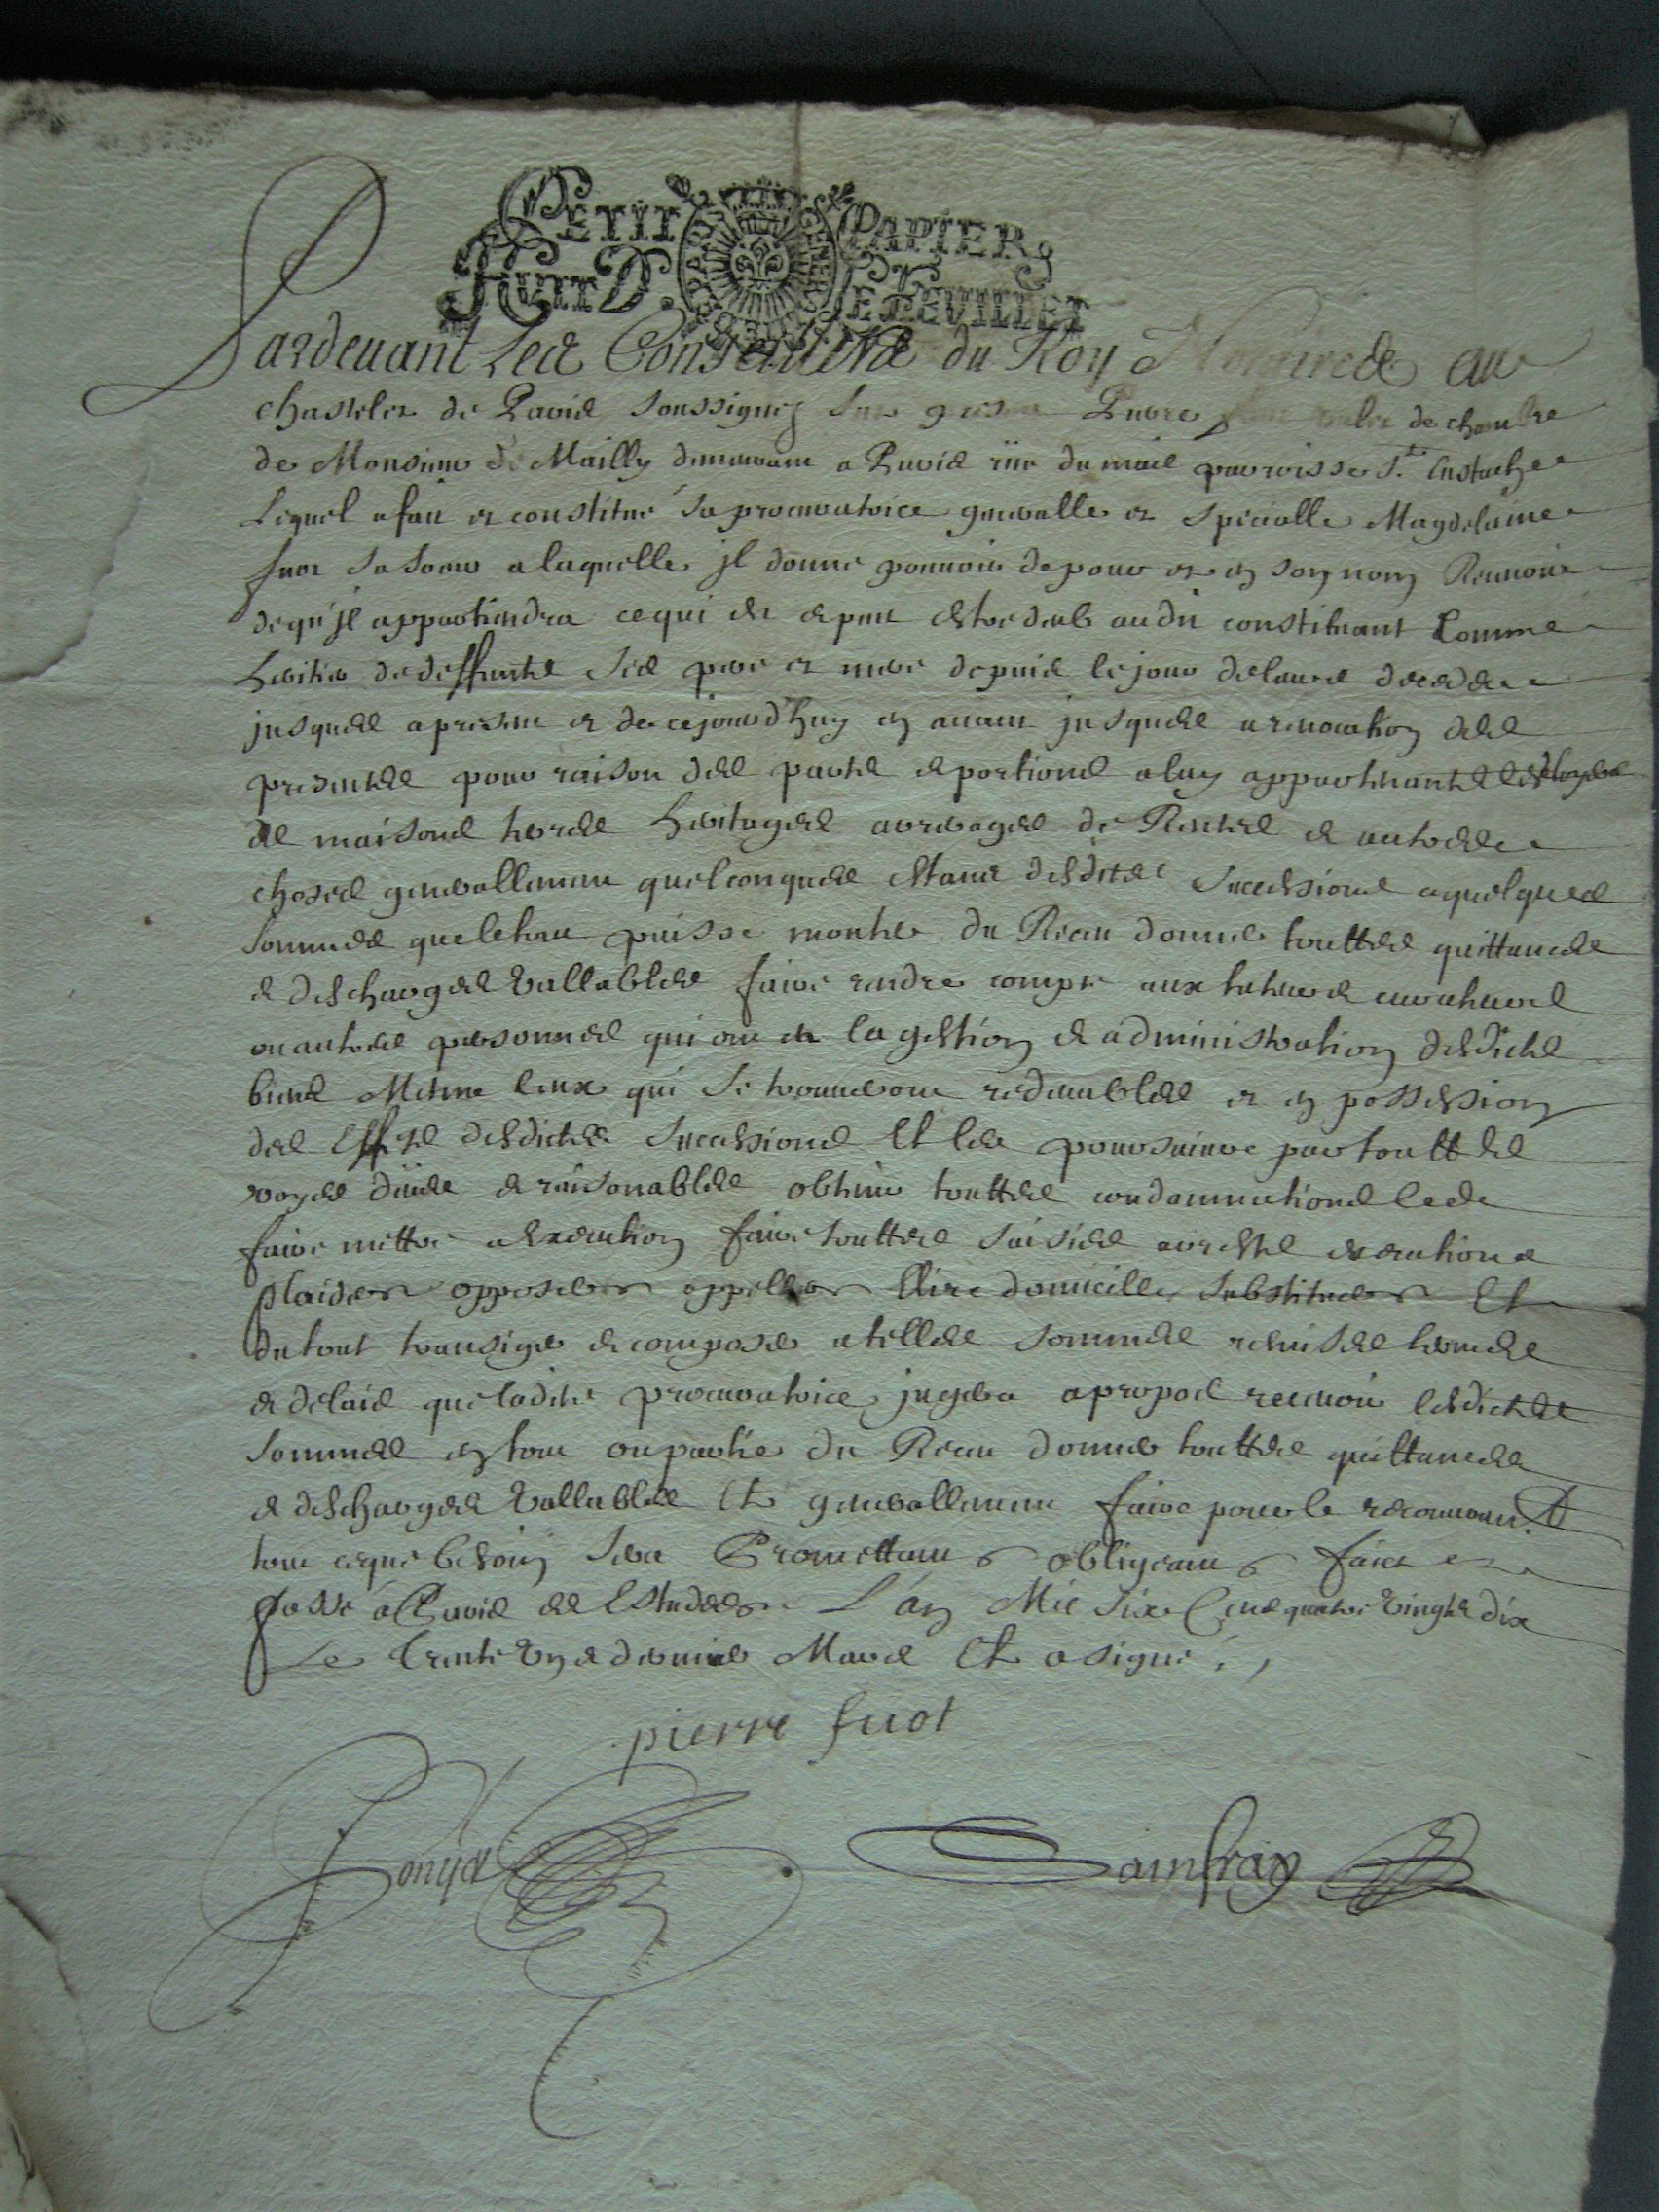 PETIT PAPIER
HUIT D. LE FEUILLET
Pardevant Les Conseillers du Roy Nottaires au
chastelet de Paris soussignez fut present Pierre fuot valet de chambre
de Monsieur de Mailly demeurant a Paris rüe du mail parroisse St. Eustache
Lequel a fait et constitué sa procuratrice generalle et specialle Magdelaine
fuot sa soeur a laquelle jl donne pouvoir de pour et en son nom Recevoir
de qu'jl appartiendra ce qui est et peut estre deub audit constituant comme
heritier de deffuncts ses pere et mere depuis le jour de leurs deceds
jusques a present et de ce jourd'huy en avant jusques a revocation des
presentes pour raison des parts et portions a luy appartenantes es loyers
de maisons terres heritages arrerages de Rentes et autres
choses generallement quelconques estans desdites successions a quelques
sommes que le tout puisse monter du Receu donner touttes quittances
et descharges vallables faire rendre compte aux tuteurs curateurs
ou autres personnes qui ont eu la gestion et administration desdicts
biens Mesme ceux qui se trouveront redevables et en possession
des Effets desdictes successions Et les poursuivre par touttes
voyes düës et raisonables obtenir touttes condamnations les
faire mettre a execution faire touttes saisies arrests executions
plaider opposer appeller Elire domicille substituer Et
du tout transiger et composer a telles sommes remises termes
et delais que ladite procuratrice jugera a propos recevoir lesdictes
sommes en tout ou partie du Receu donner touttes quittances
et descharges vallables Et generallement faire pour le recouvrement
tout ce que besoin sera Promettant obligeant faict et
passé a Paris es Estudes L'an Mil six Cens quatre vingts dix
Le trente un et dernier Mars Et a signé
pierre fuot
Sainfray